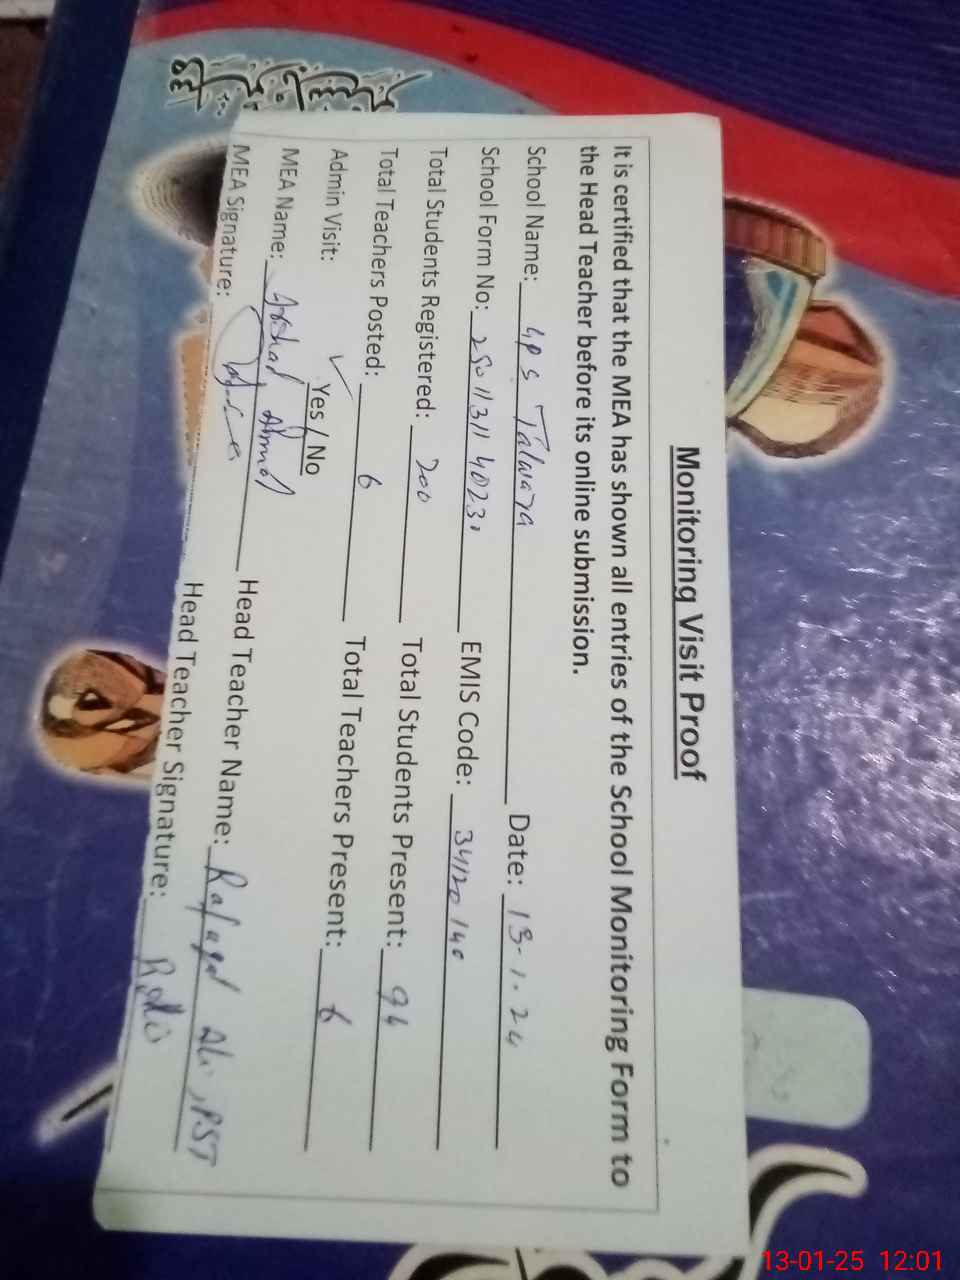 Monitoring Visit Proof
It is certified that the MEA has shown all entries of the School Monitoring Form to
the Head Teacher before its online submission.
School Name: GPS Talwara Date: 13-1-24
School Form No: EMIS Code: 34120140
Total Students Registered: 200 Total Students Present: 96
Total Teachers Posted: 6 Total Teachers Present: 6
Admin Visit: ✓ Yes / No
MEA Name: Arshad Ahmad Head Teacher Name: Rafaqat Ali, PST
MEA Signature: Head Teacher Signature:
13-01-25 12:01